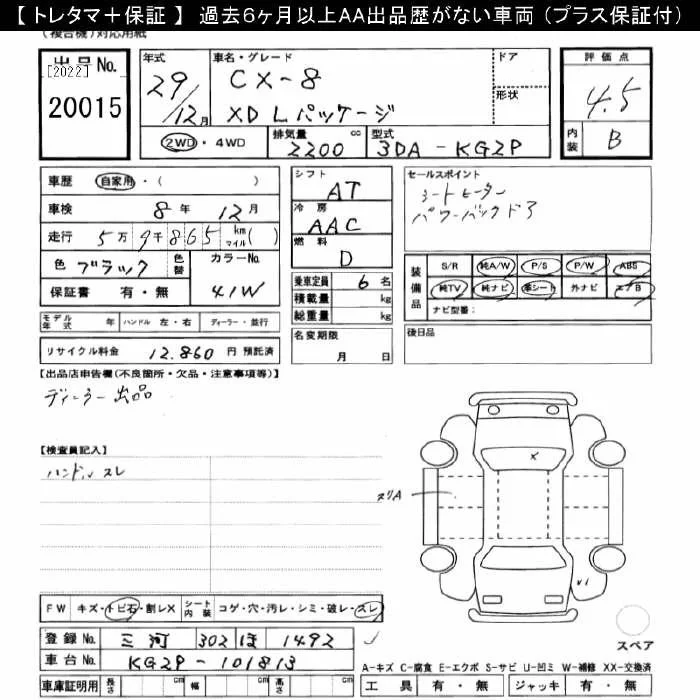 【 トレタマ＋保証 】 過去6ヶ月以上AA出品歴がない車両 （プラス保証付）
（複合機）対応用紙
出品No.
[2022]
20015
年式
29/12月
車名・グレード
CX-8
XD Lパッケージ
ドア
形状
評価点
4.5
内装 B
2WD・4WD
排気量 2200 cc
型式 3DA-KG2P
車歴 自家用・( )
車検 8年 12月
走行 5万9千865 km マイル( )
色 ブラック 色替
カラーNo. 41W
保証書 有・無
シフト AT
冷房 AAC
燃料 D
乗車定員 6名
積載量 kg
総重量 kg
セールスポイント
シートヒーター
パワーバックドア
装備品
S/R 純A/W P/S P/W ABS
純TV 純ナビ 革シート 外ナビ エアB
ナビ型番：
モデル年式 年 ハンドル 左・右 ディーラー・並行
名変期限
月 日
後日品
リサイクル料金 12,860 円 預託済
【出品店申告欄(不良箇所・欠品・注意事項等)】
ディーラー出品
【検査員記入】
ハンドルスレ
ヌリA
X
U1
FW キズ・トビ石・割レX シート内装 コゲ・穴・汚レ・シミ・破レ・スレ
登録No. 三河 302 ほ 1492
車台No. KG2P-101813
スペア
A-キズ C-腐食 E-エクボ S-サビ U-凹ミ W-補修 XX-交換済
車庫証明用 長さ 幅 高さ cm
工具 有・無 ジャッキ 有・無